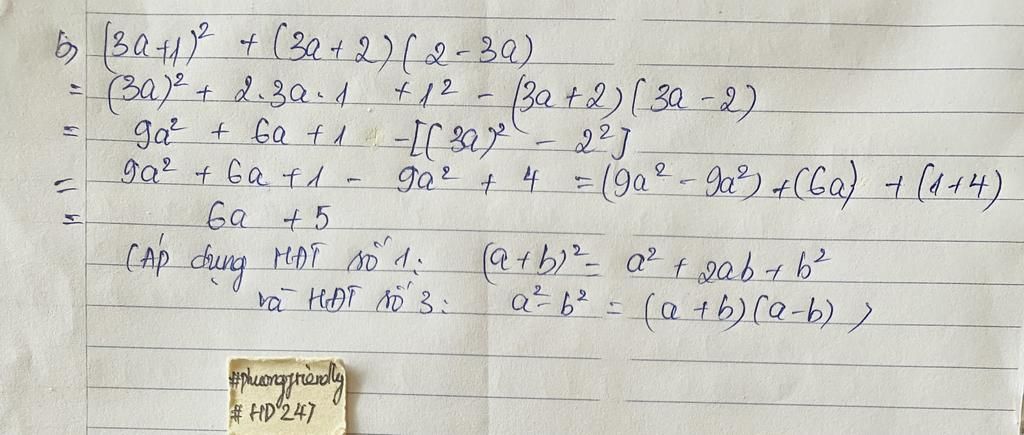 b) (3a+1)² + (3a+2)(2-3a)
= (3a)² + 2.3a.1 + 1² - (3a+2)(3a-2)
= 9a² + 6a +1 -[(3a)² - 2²]
= 9a² + 6a +1 - 9a² + 4 = (9a² - 9a²) + (6a) + (1+4)
= 6a + 5
(Áp dụng HĐT số 1: (a+b)² = a² + 2ab + b²
và HĐT số 3: a² - b² = (a+b)(a-b) )
#phuongfriendly
# HD 247